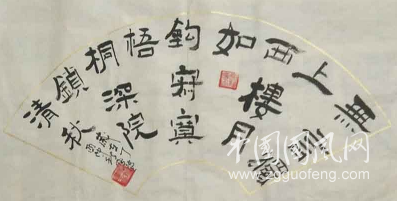 無言獨
上
西樓月
如
鈎寂寞
梧
桐深院
鎖
清秋
中国国风网
www.zgguofeng.com